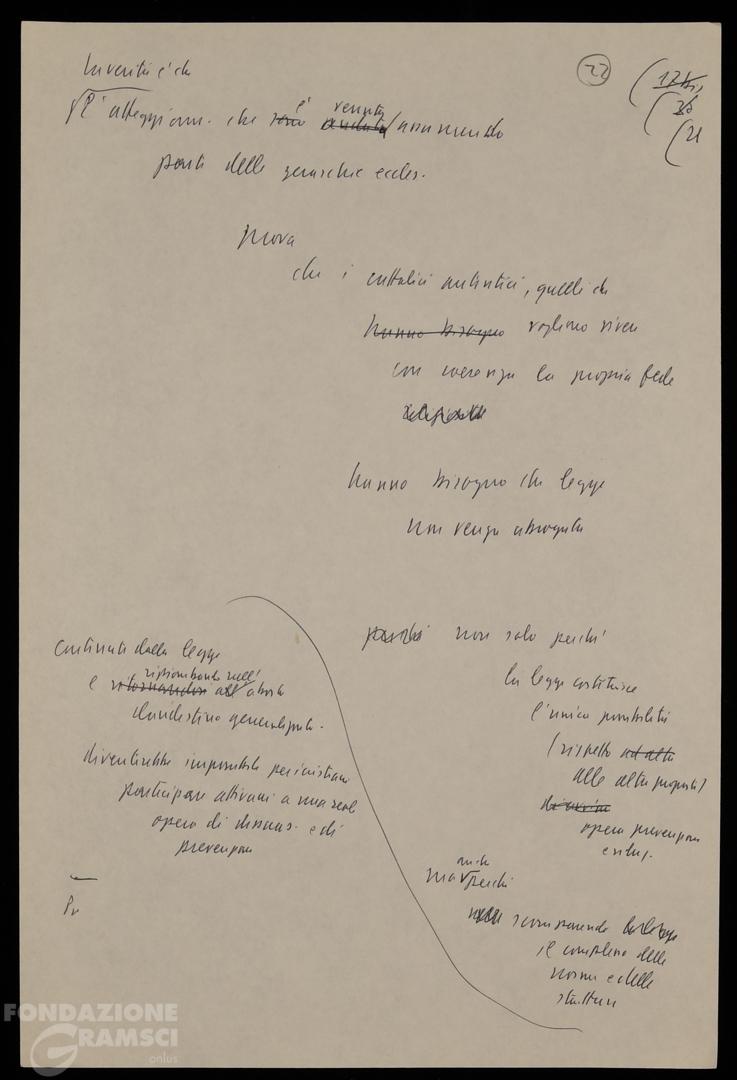 22
(17bis
(28
(21
In verità è che
l'atteggiam. che sono è andato venuta assumendo
parte delle gerarchie eccles.
prova
che i cattolici autentici, quelli che
hanno bisogno vogliono vivere
con coerenza la propria fede
hanno bisogno che legge
non venga abrogata
perché non solo perché
la legge costituisce
l'unica possibilità
(rispetto ad altre
alle altre proposte)
opera prevenzione
ma anche perché
scomparendo la legge
il complesso delle
norme e delle
strutture
contenute dalla legge
e ritornandosi all' ripiombando nell' aborto
clandestino generalizzato.
diventerebbe impossibile per i cristiani
partecipare attivam a una reale
opera di dissuas. e di
prevenzione
Pr
FONDAZIONE
GRAMSCI
onlus